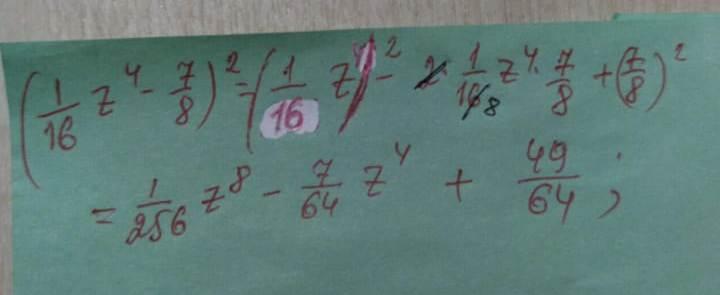 (1/16 z⁴ - 7/8)² = (1/16 z⁴)² - 2 · 1/16 8 z⁴ · 7/8 + (7/8)²
= 1/256 z⁸ - 7/64 z⁴ + 49/64 ;